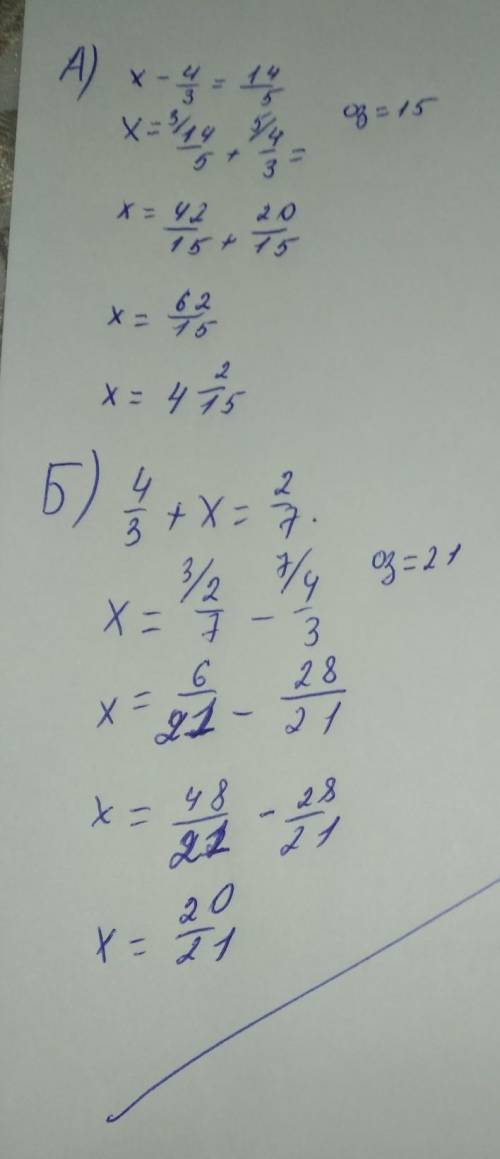 А) x - 4/3 = 14/5
x = 3/ 14/5 + 5/ 4/3 = оз = 15
x = 42/15 + 20/15
x = 62/15
x = 4 2/15
Б) 4/3 + x = 2/7.
x = 3/ 2/7 - 7/ 4/3 оз = 21
x = 6/21 - 28/21
x = 48/21 - 28/21
x = 20/21